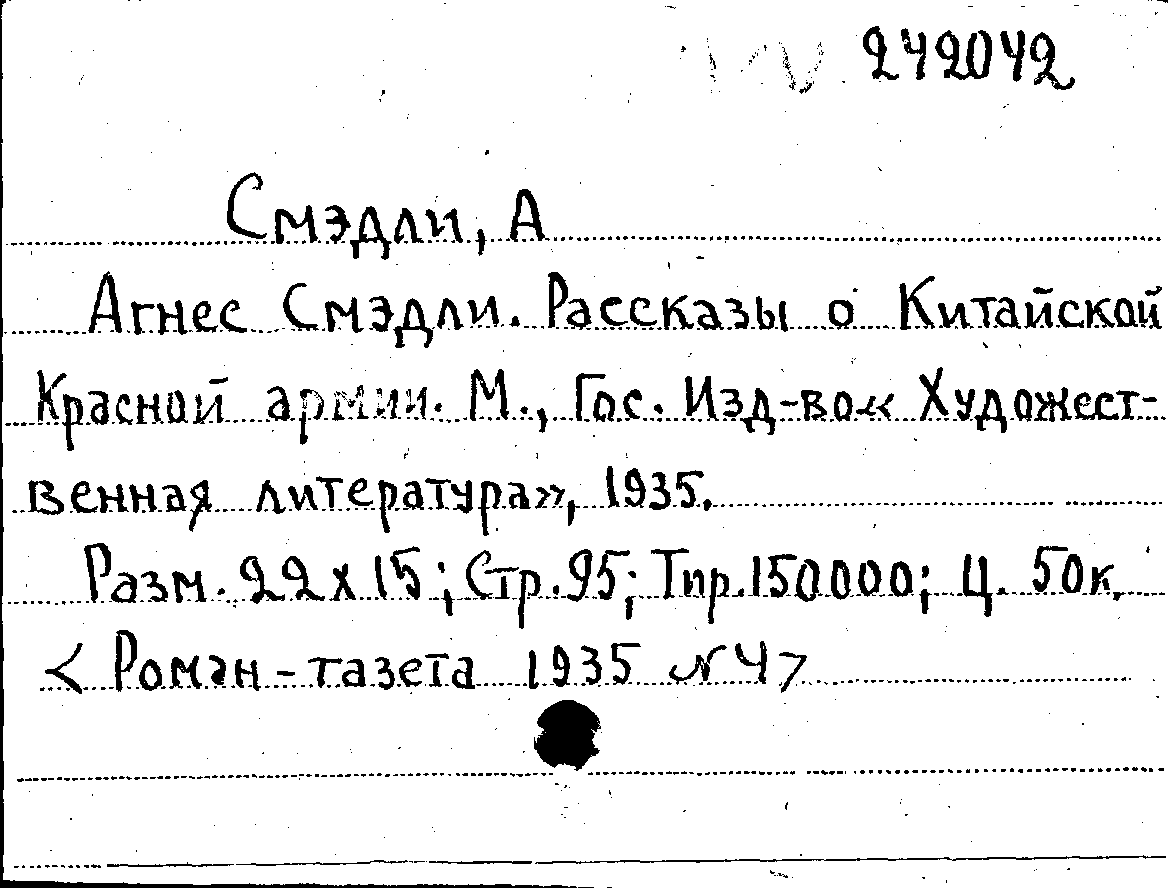 242042
Смэдли, А
Агнес Смэдли. Рассказы о Китайской
Красной армии. М., Гос. Изд-во« Художест-
венная литература», 1935.
Разм. 22х15; Стр. 95; Тир. 150000; Ц. 50к.
< Роман-газета 1935 №4>